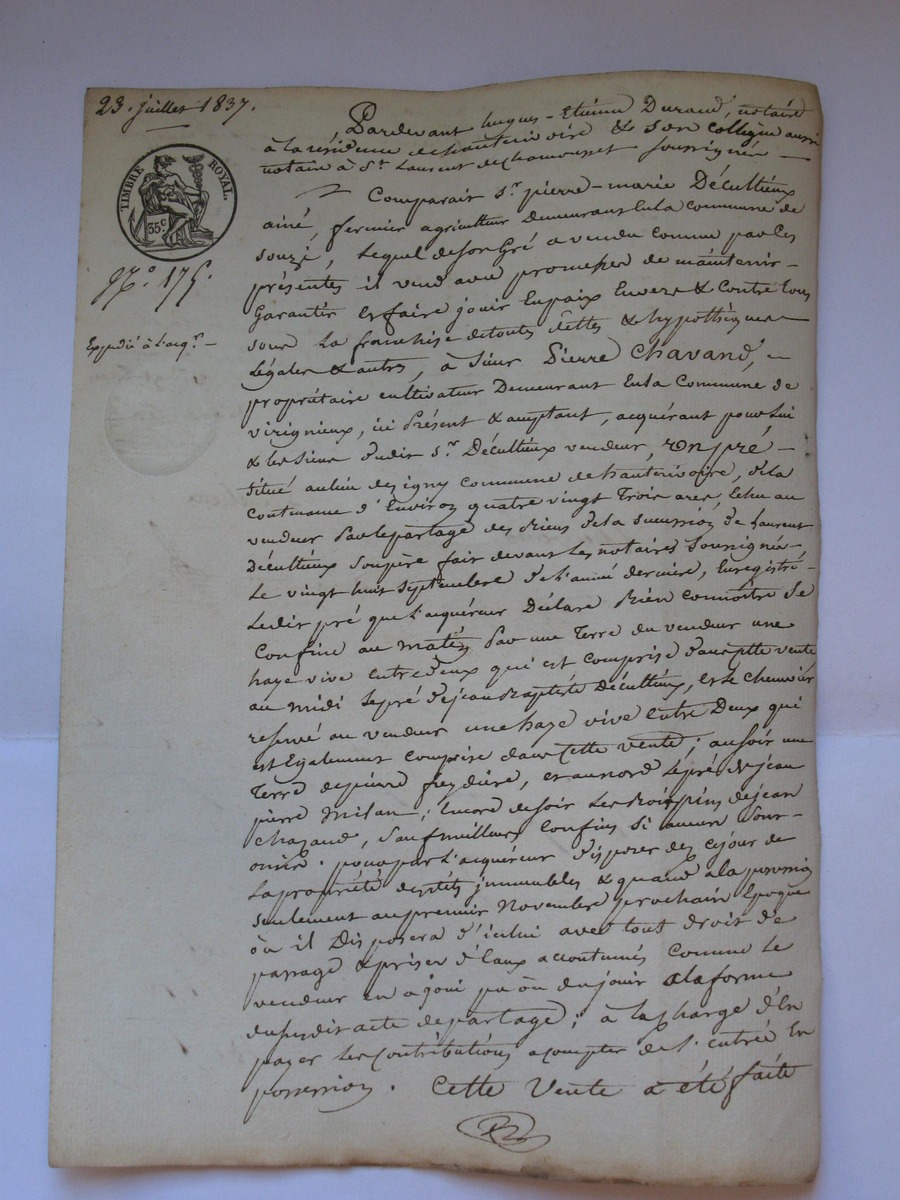 23. juillet 1837.
TIMBRE ROYAL.
35c
N.o 175.
Expédié à l'acq.r —
Pardevant hugues-Etienne Durand, notaire
à la résidence de hauterivoire & son collègue aussi
notaire à St. Laurent de chamousset soussignés —
Comparait Sr. pierre-marie Décultieux
ainé, fermier agriculteur Demeurant En la commune de
souzi, Lequel de son Gré a vendu comme par Ces
présentes il vend avec promesse de maintenir —
Garantir et faire jouir En paix Envers & Contre tous
sous la franchise de toutes dettes & hypothèques
Légales & autres, à Sieur Pierre Chavand, —
propriétaire cultivateur Demeurant En la Commune de
virignieux, ici Présent & acceptant, acquérant pour Lui
& les siens dudit Sr. Décultieux vendeur, Un pré, —
Situé au lieu de igny commune de hauterivoire, de la
contenance d'Environ quatre vingt Trois ares, Echu au
vendeur Par le partage des Biens de la succession de Laurent
Décultieux Son père fait devant Les notaires Soussignés —
Le vingt huit Septembre de l'année dernière, Enregistré. —
Ledit pré que l'acquéreur Déclare Bien connoître Se
Confine au matin Par une Terre du vendeur une
haye vive entre deux qui est comprise dans cette vente
au midi le pré de jean Baptiste Décultieux, et le chenevier
reservé au vendeur une haye vive Entre Deux qui
est Egalement comprise dans Cette vente; au soir une
Terre de pierre freydière, et au nord le pré de jean
pierre Milan; Encore de soir Les Bois pins de jean
Chazaud, Sauf meilleurs Confins si aucun Sont
omis. pour par l'acquéreur disposer dès ce jour de
La propriété desdits immeubles & quand à la possession
seulement au premier Novembre prochain Epoque
où il Disposera d'icelui avec tout droit de
passage & prises d'Eaux accoutumés comme Le
vendeur en a joui pu ou du jouir à la forme
du susdit acte de partage; à la charge d'En
payer Les Contributions à compter de l'entrée En
possession. Cette Vente a été faite